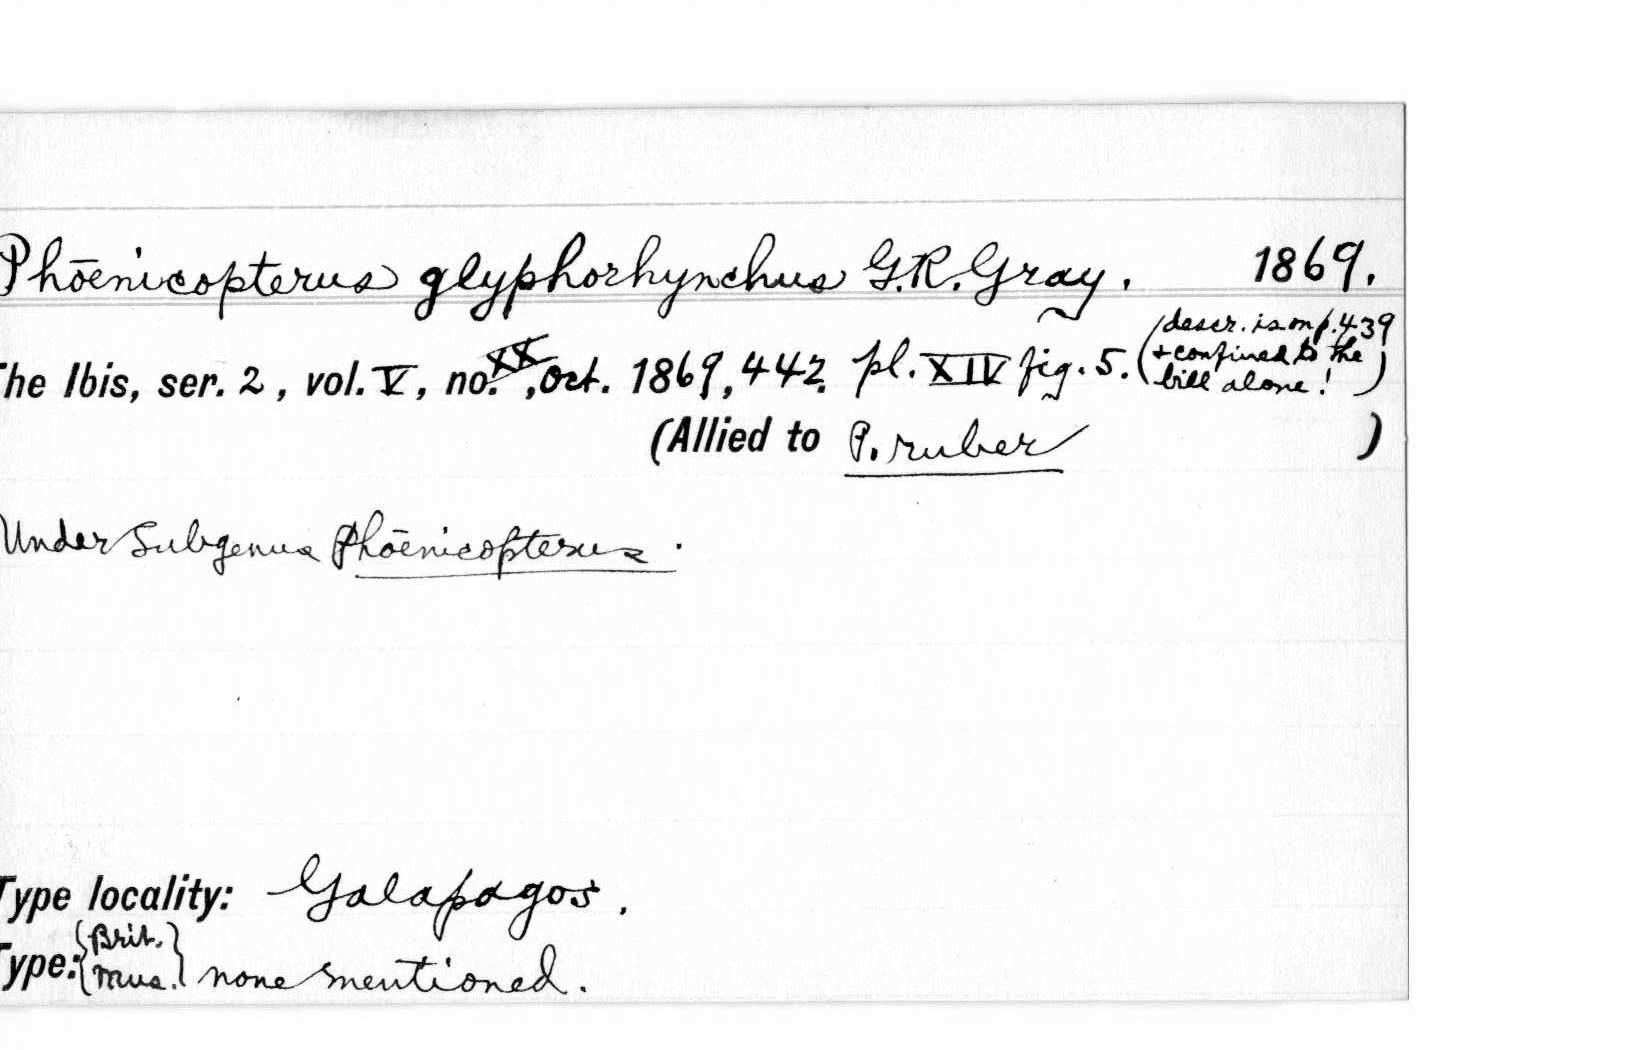 Phoenicopterus glyphorhynchus G.R. Gray. 1869.
The Ibis, ser. 2, vol. V, no. XX, Oct. 1869, 442. pl. XIV fig. 5. (descr. is on p. 439
+ confined to the
bill alone! )
(Allied to P. ruber )
Under Subgenus Phoenicopterus.
Type locality: Galapagos.
Type: {Brit. Mus.} none mentioned.